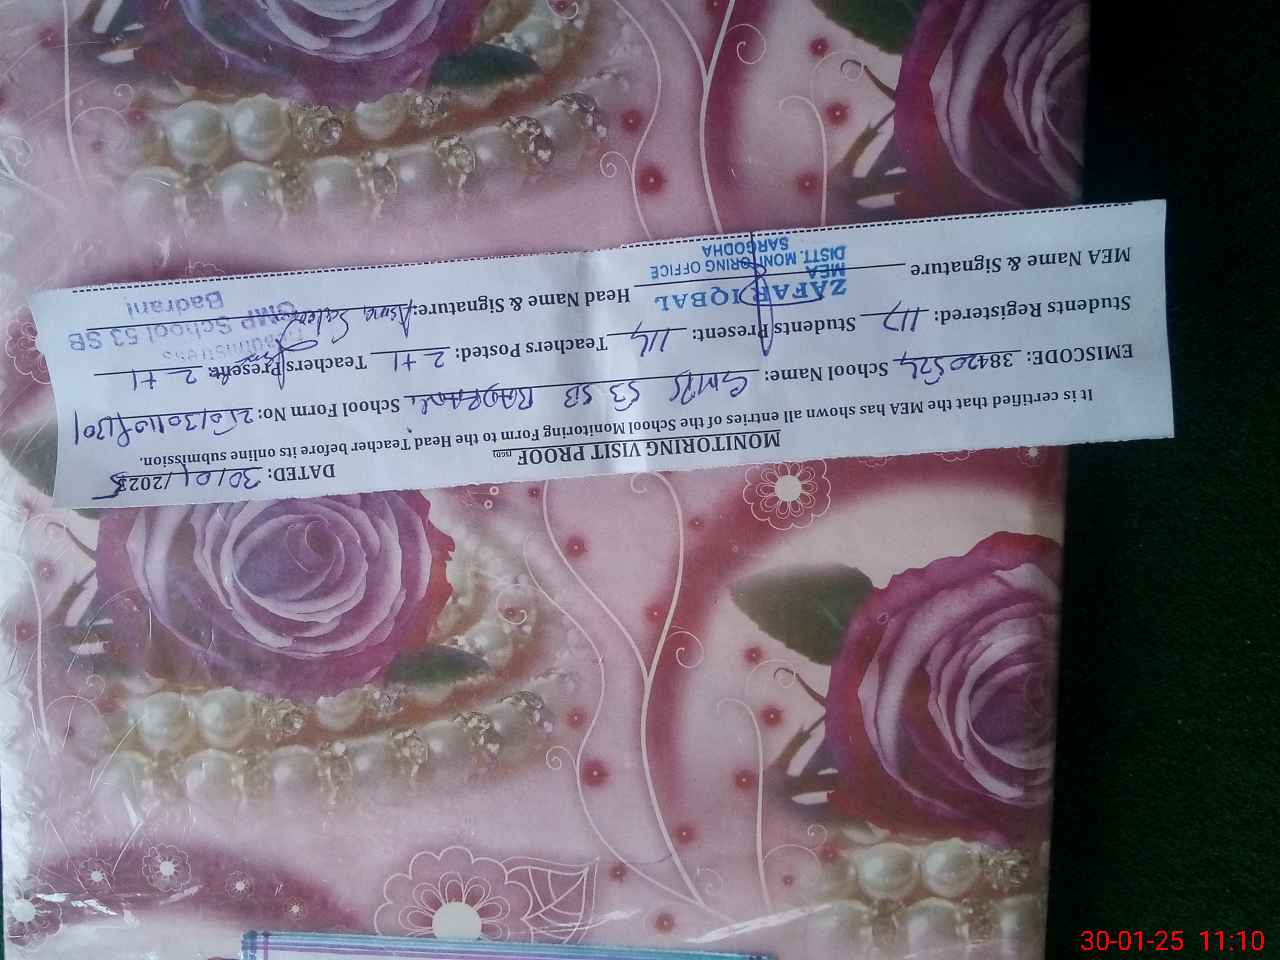 MONITORING VISIT PROOF (SED) DATED: 30/01/2025
It is certified that the MEA has shown all entries of the School Monitoring Form to the Head Teacher before its online submission.
EMISCODE: 38420524 School Name: GMPS 53 SB BADRANI School Form No:
Students Registered: 117 Students Present: 114 Teachers Posted: 2+1 Teachers Present: 2+1
MEA Name & Signature Head Name & Signature: Asma
ZAFAR IQBAL
MEA
DISTT. MONITORING OFFICE
SARGODHA
Headmistress
GMP School 53 SB
Badrani
30-01-25 11:10